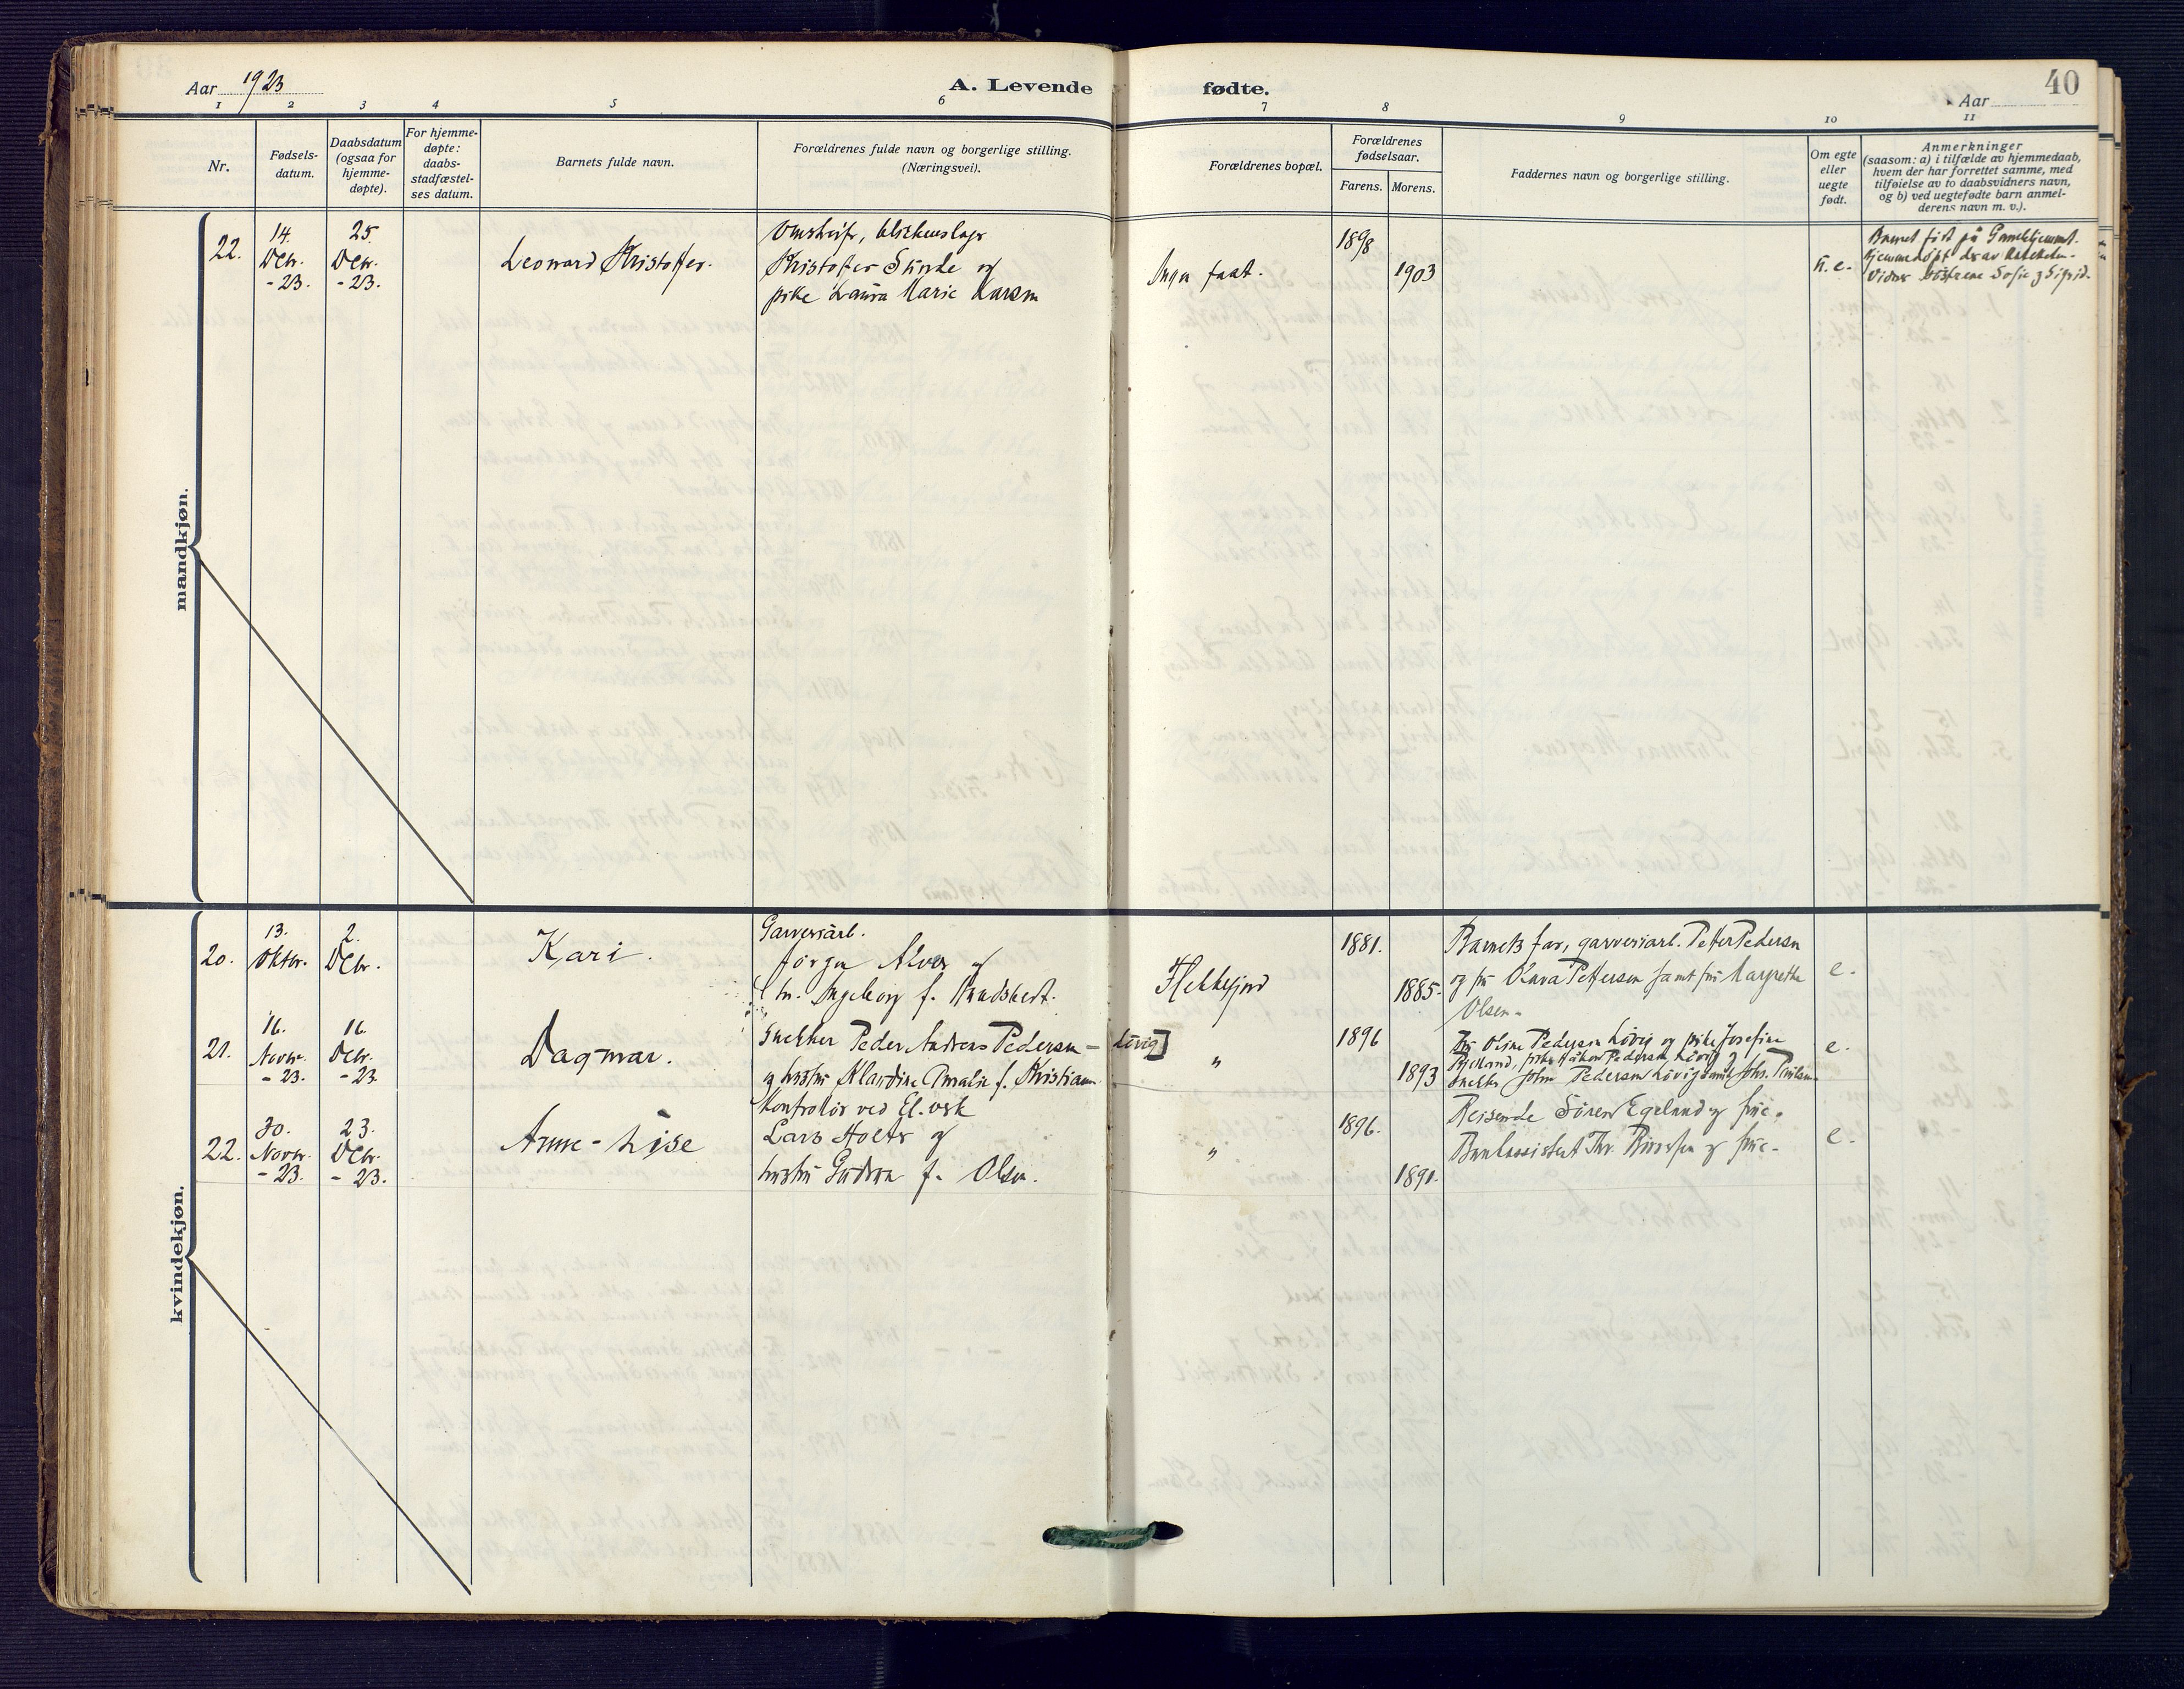 Aar 1923
A. Levende fødte.
Aar
40
1 2 3 4 5 6 7 8 9 10 11
Nr.
Fødsels-
datum.
Daabsdatum
(ogsaa for
hjemme-
døpte).
For hjemme-
døpte:
daabs-
stadfæstel-
ses datum.
Barnets fulde navn.
Forældrenes fulde navn og borgerlige stilling.
(Næringsvei).
Forældrenes bopæl.
Forældrenes
fødselsaar.
Farens. Morens.
Faddernes navn og borgerlige stilling.
Om egte
eller
uegte
født.
Anmerkninger
(saasom: a) i tilfælde av hjemmedaab,
hvem der har forrettet samme, med
tilføielse av to daabsvidners navn,
og b) ved uegtefødte barn anmel-
derens navn m. v.).
mandkjøn.
22.
14.
Dcbr.
- 23.
25.
Dcbr.
- 23.
Leonard Kristoffer.
blikkenslager
Kristoffer Sunde og
pike Laura Marie Larsen
Ingen faat.
1898
1903
u. e.
Barnet født på Gamlehjemmet.
Hjemmedøpt der av
Vidner Søstrene Sofie og Sigrid.
kvindekjøn.
20.
13.
Oktbr.
2.
Dcbr.
Kari.
Garveriarb.
Jørgen Alver og
h. Ingeborg f.
Flekkefjord
1881.
1885.
Barnets far, garveriarb. Petter Pedersen
og fru Olava Pettersen samt fru Margrethe
Olsen.
e.
21.
16.
Novbr.
- 23.
16.
Dcbr.
- 23.
Dagmar.
Snekker Peder Andreas Pedersen -
Løvig]
og hustru Klardine Amalie f. Kristiansen
"
1896
1893
Fru Oline Pedersen Løvig og pike Josefine
pike Håkon Pedersen Løvig
snekker John Pedersen Løvig samt Johs.
e.
22.
30.
Novbr.
- 23.
23.
Dcbr.
- 23.
Anne-Lise
Kontrolør ved El. verk
Lars Holter og
hustru Gudrun f. Olsen.
"
1896.
1891.
Reisende Søren Egeland og frue.
Bankassistent Thv. og frue.
e.